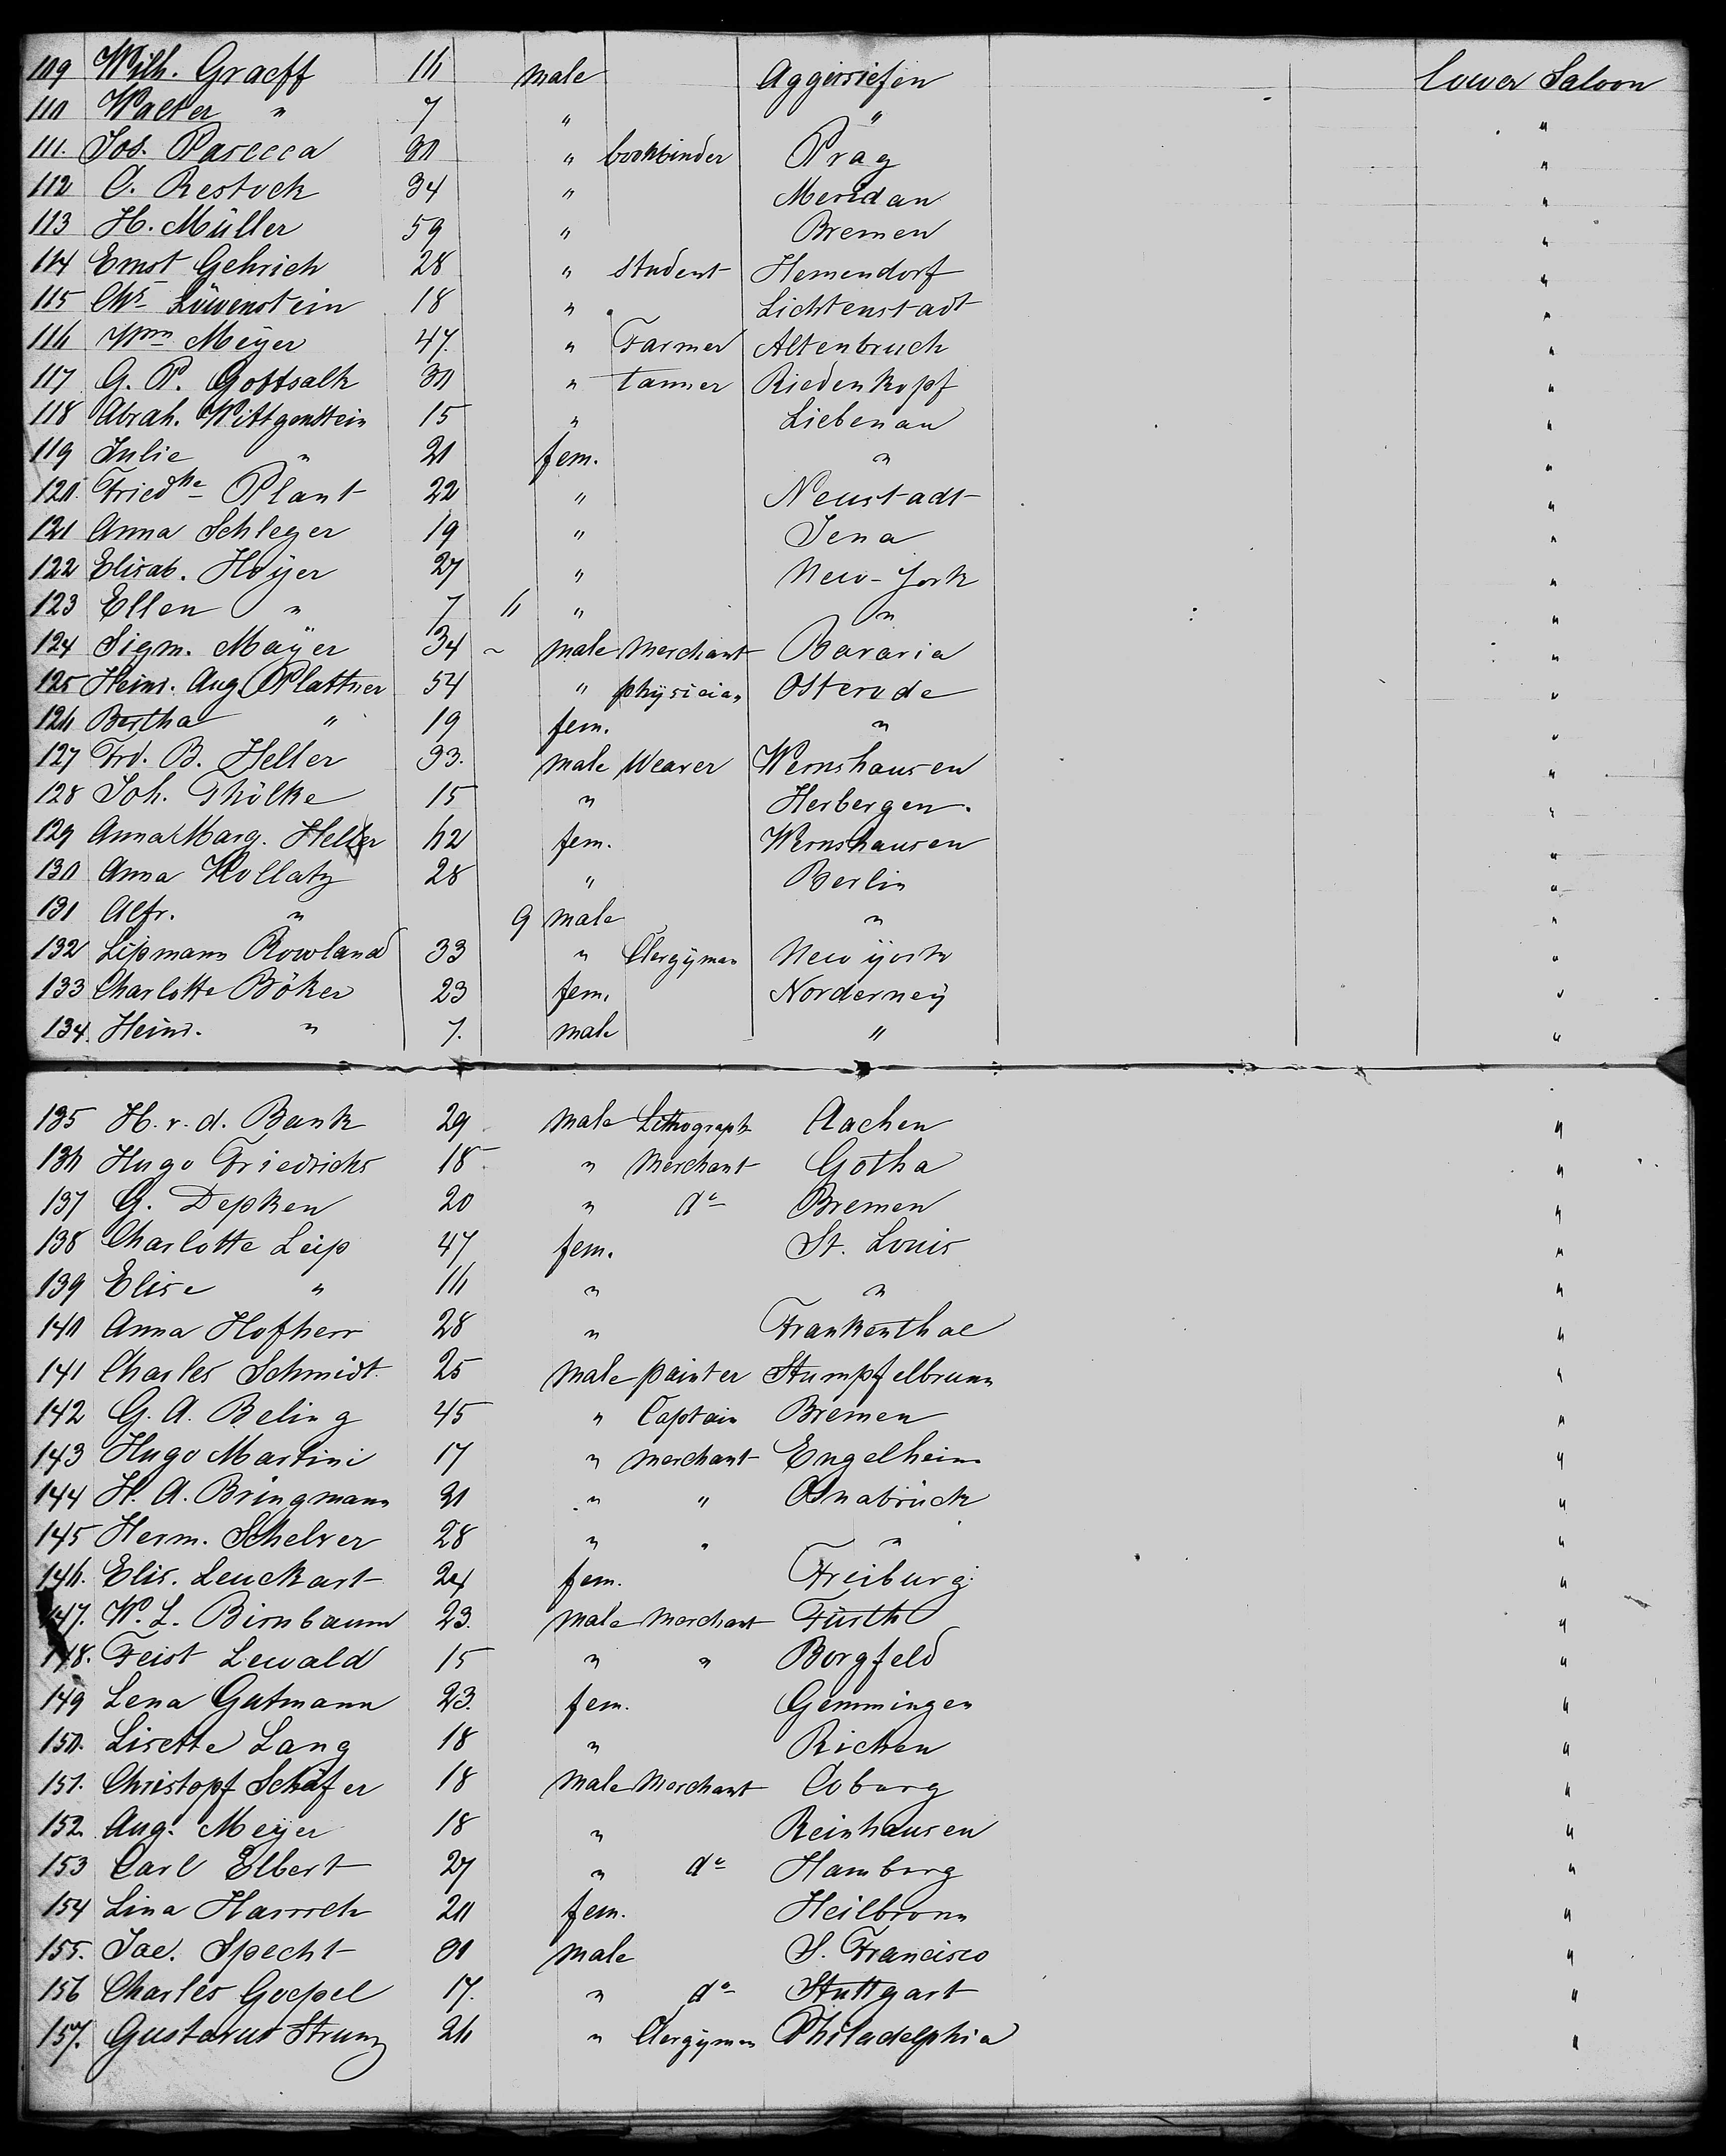 109 Wilh. Graeff 16 male Aggersiefen lower Saloon
110 Walter " 7 " " "
111. Jos. Pasecca 30 " bookbinder Prag "
112 C. Restock 34 " Meridan "
113 H. Müller 59 " Bremen "
114 Ernst Gehrich 28 " student Hemendorf "
115 Chs Löwenstein 18 " Lichtenstadt "
116 Wm Meyer 47. " Farmer Altenbruch "
117 G. P. Gottsalk 30 " tanner Riedenkopf "
118 Abrah. Wittgenstein 15 " Liebenau "
119 Julie " 21 fem. " "
120. Friedke Plant 22 " Neustadt "
121 Anna Schleger 19 " Jena "
122 Elisab. Hoÿer 27 " New-York "
123 Ellen " 7 6 " " "
124 Sigm. Maÿer 34 ~ male Merchant Bavaria "
125 Heinr. Aug. Plattner 54 " physician Osterode "
126 Bertha " 19 fem. " "
127 Frd. B. Heller 33. male Weaver Wernshausen "
128 Joh. Thölke 15 " Herbergen. "
129 Anna Marg. Heller 62 fem. Wernshausen "
130 Anna Kollatz 28 " Berlin "
131 Alfr. " 9 male " "
132 Lipmann Rowland 33 " Clergÿman New ÿork "
133 Charlotte Böker 23 fem. Norderneÿ "
134. Heinr. " 7. male " "
135 H. v. d. Bank 29 male Lithograph Aachen "
136 Hugo Friedrichs 18 " Merchant Gotha "
137 G. Depken 20 " do Bremen "
138 Charlotte Leip 47 fem. St. Louis "
139 Elise " 16 " " "
140 Anna Hofherr 28 " Frankenthal "
141 Charles Schmidt. 25 male painter Stumpfelbrunn "
142 G. A. Beling 45 " Captain Bremen "
143 Hugo Martini 17 " merchant Engelheim "
144 H. A. Bringmann 31 " " Osnabrück "
145 Herm. Schelver 28 " " " "
146. Elis. Leuckart 24 fem. Freiburg "
147. W. L. Birnbaum 23. male Merchant Fürth "
148. Feist Lewald 15 " " Borgfeld "
149 Lena Gutmann 23. fem. Gemmingen "
150. Lisette Lang 18 " Richen "
151. Christopf Schäfer 18 male Merchant Coburg "
152. Aug. Meyer 18 " Reinhausen "
153 Carl Elbert 27 " do Hamburg "
154 Lina 20 fem. Heilbronn "
155. Jac. Specht 31 male S. Francisco "
156 Charles Goepel 17. " do Stuttgart "
157. Gustavus Strunz 26 " Clergÿman Philadelphia "